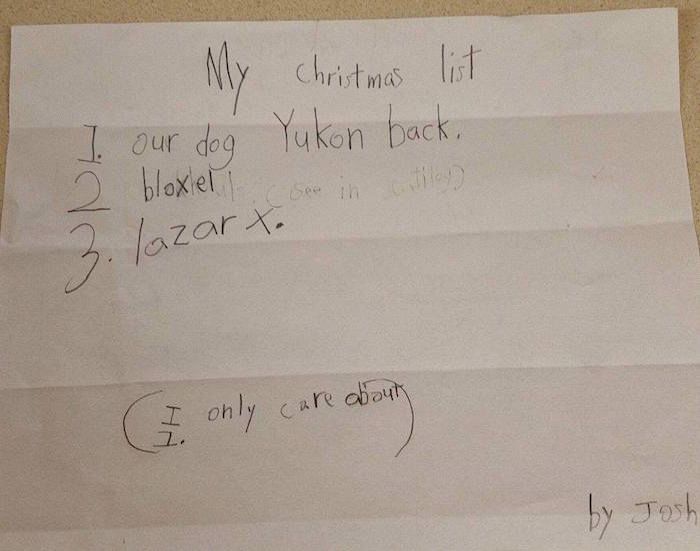 My christmas list
1. our dog Yukon back.
2 bloxel (see in
3. lazar x.
(I only care about
1.)
by Josh